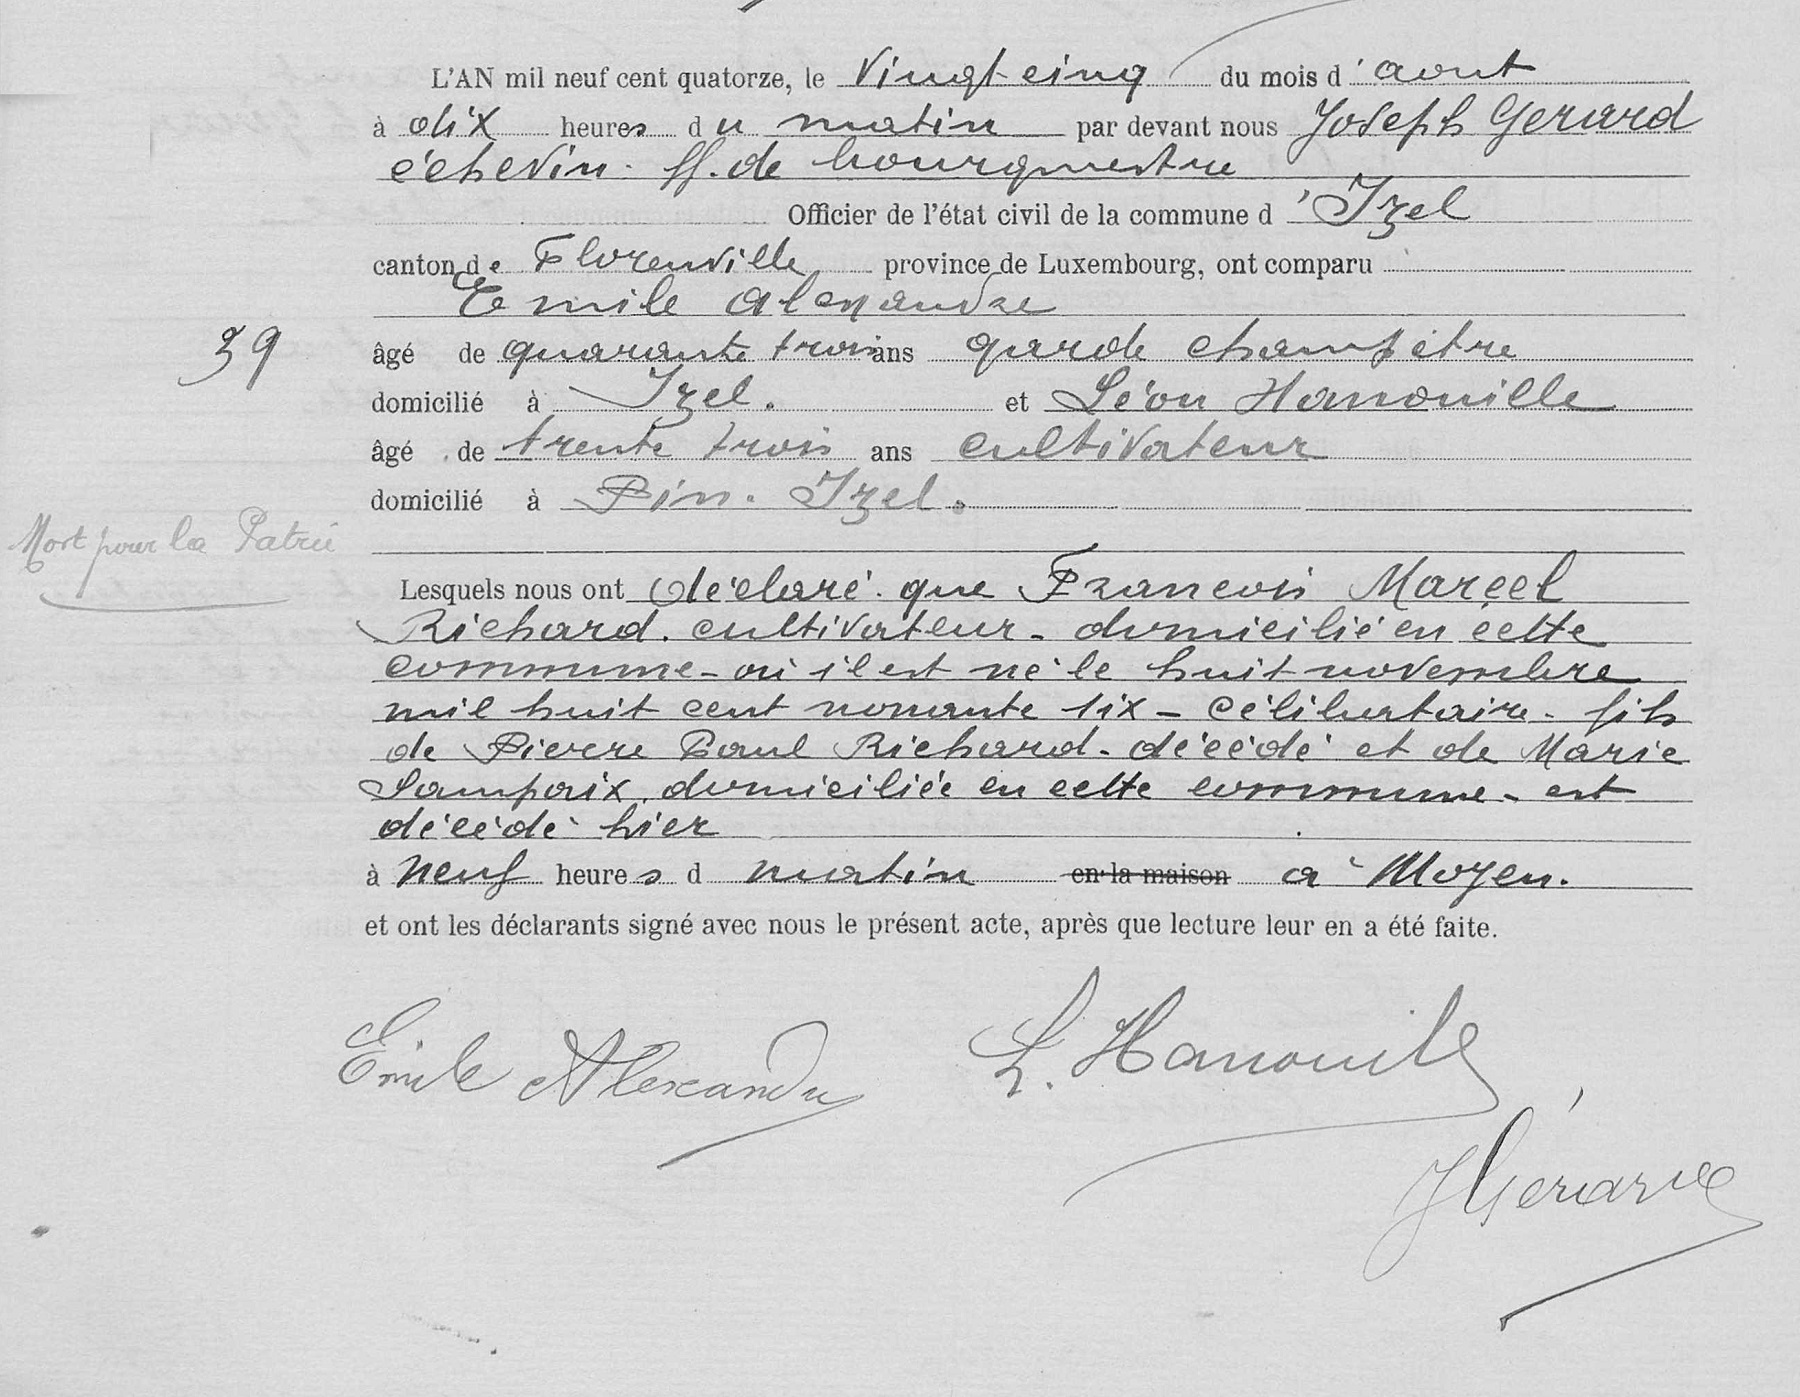 L'AN mil neuf cent quatorze, le vingt cinq du mois d'aout
à dix heures du matin par devant nous Joseph Gerard
échevin. ff. de bourgmestre
Officier de l'état civil de la commune d'Izel
canton de Florenville province de Luxembourg, ont comparu
Emile Alexandre
39
âgé de quarante trois ans garde champêtre
domicilié à Izel. et Léon Hanouille
âgé de trente trois ans cultivateur
domicilié à Pin. Izel.
Mort pour la Patrie
Lesquels nous ont déclaré. que Francois Marcel
Richard. cultivateur - domicilié en cette
commune - où il est né le huit novembre
mil huit cent nonante six - célibataire - fils
de Pierre Paul Richard - décédé et de Marie
Lampaix. domiciliée en cette commune - est
décédé hier
à neuf heures d matin en la maison à Moyen.
et ont les déclarants signé avec nous le présent acte, après que lecture leur en a été faite.
Emile Alexandre L. Hanouille
J Gérard